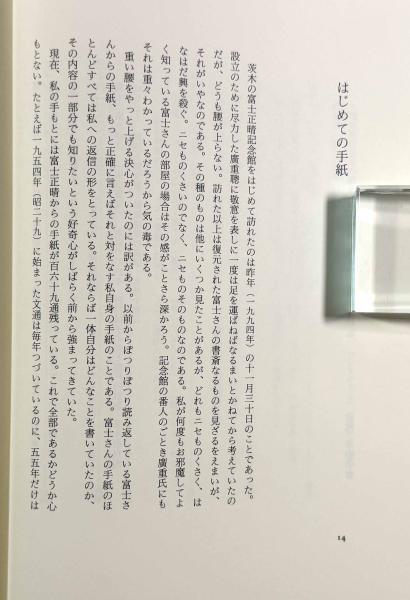 はじめての手紙
茨木の富士正晴記念館をはじめて訪れたのは昨年（一九九四年）の十一月三十日のことであった。
設立のために尽力した廣重聰に敬意を表しに一度は足を運ばねばなるまいとかねてから考えていたの
だが、どうも腰が上らない。訪れた以上は復元された富士さんの書斎なるものを見ざるをえまいが、
それがいやなのである。その種のものは他にいくつか見たことがあるが、どれもニセものくさく、は
なはだ興を殺ぐ。ニセものくさいのでなく、ニセものそのものなのである。私が何度もお邪魔してよ
く知っている富士さんの部屋の場合はその感がことさら深かろう。記念館の番人のごとき廣重氏にも
それは重々わかっているだろうから気の毒である。
重い腰をやっと上げる決心がついたのには訳がある。以前からぽつりぽつり読み返している富士さ
んからの手紙、もっと正確に言えばそれと対をなす私自身の手紙のことである。富士さんの手紙のほ
とんどすべては私への返信の形をとっている。それならば一体自分はどんなことを書いていたのか、
その内容の一部分でも知りたいという好奇心がしばらく前から強まってきていた。
現在、私の手もとには富士正晴からの手紙が百六十九通残っている。これで全部であるかどうか心
もとない。たとえば一九五四年（昭二十九）に始まった文通は毎年つづいているのに、五五年だけは
14